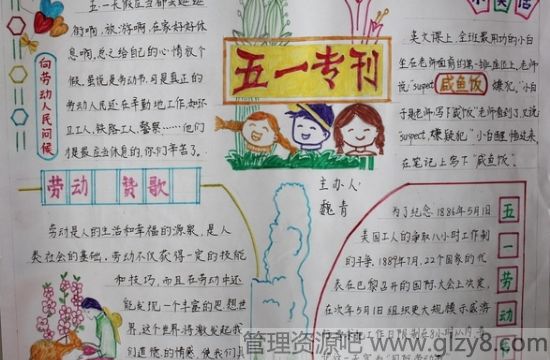 五一专刊
向劳动人民问候
五一本应当都去逛逛
街啊,旅游啊,在家好好休
息啊,总之给自己的心情放个
假,虽说是劳动节,可是真正的
劳动人民还在辛勤地工作,如环
卫工人,铁路工人,警察……他们
才是最应当休息的,你们辛苦了。
小笑话
英文课上,全班最用功的小白
坐在老师面前的第一排座位上,老师
说:"supect 嫌犯,"小白
咸鱼饭
于是老师写下咸鱼饭"老师看到了,又说
"suspect,嫌疑犯,"小白醒悟过来,
在笔记上写下"咸鱼饭。"
劳动赞歌
劳动是人的生活和幸福的源泉,是人
类社会的基础。劳动不仅获得一定的技能
和技巧,而且在劳动中还
能发现一个丰富的思想世
界,这个世界将激发起我
们道德的情感,使我们
主办人:
魏青
五一劳动
为了纪念1886年5月1日
美国工人的争取八小时工作制
的斗争,1889年7月,22个国家的代
表在巴黎召开的国际大会上决定,
在次年5月1日组织更大规模示威游
管理资源吧 www.glzy8.com